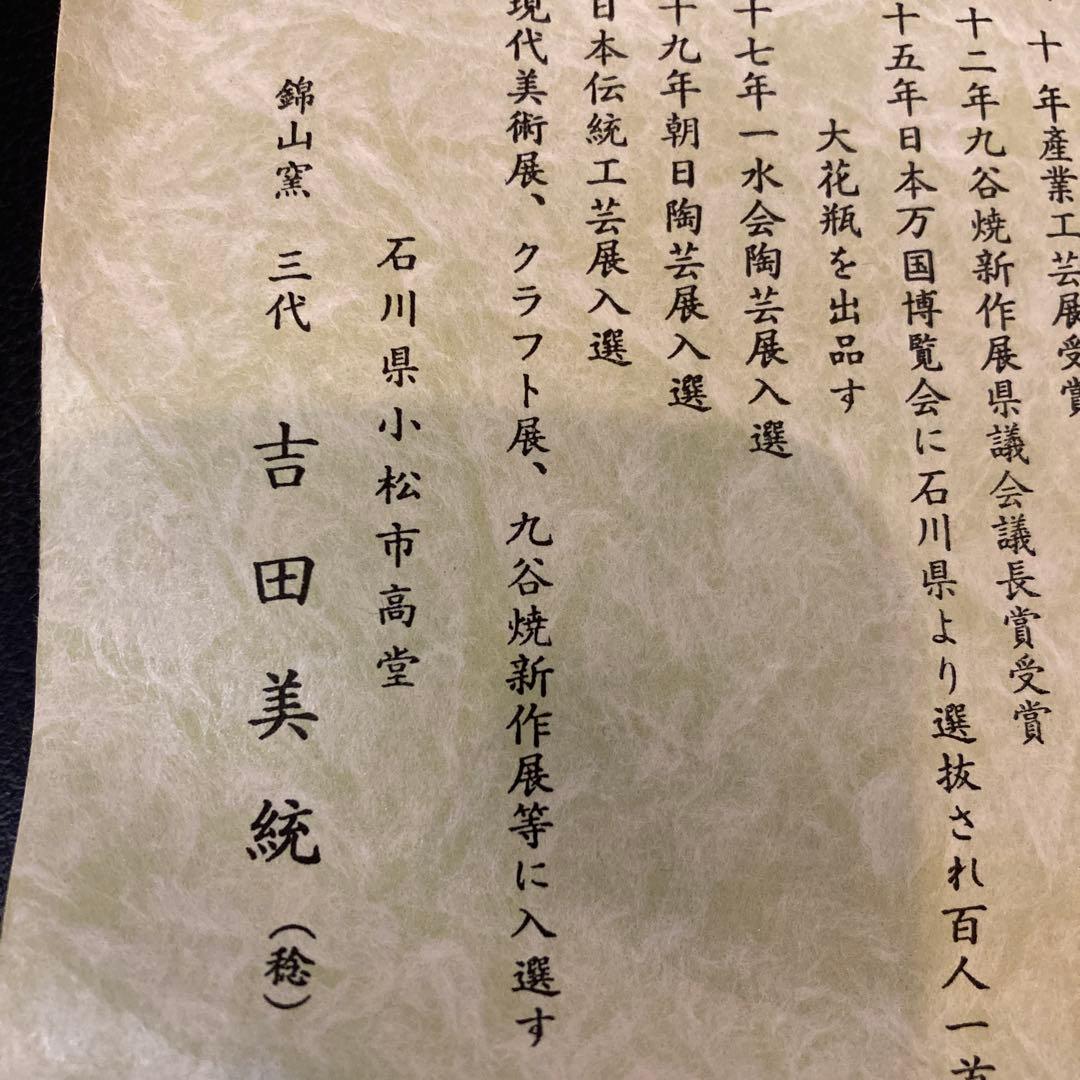 十年産業工芸展受賞
十二年九谷焼新作展県議会議長賞受賞
十五年日本万国博覧会に石川県より選抜され百人一首
大花瓶を出品す
十七年一水会陶芸展入選
十九年朝日陶芸展入選
日本伝統工芸展入選
現代美術展、クラフト展、九谷焼新作展等に入選す
石川県小松市高堂
錦山窯 三代 吉田美統（稔）